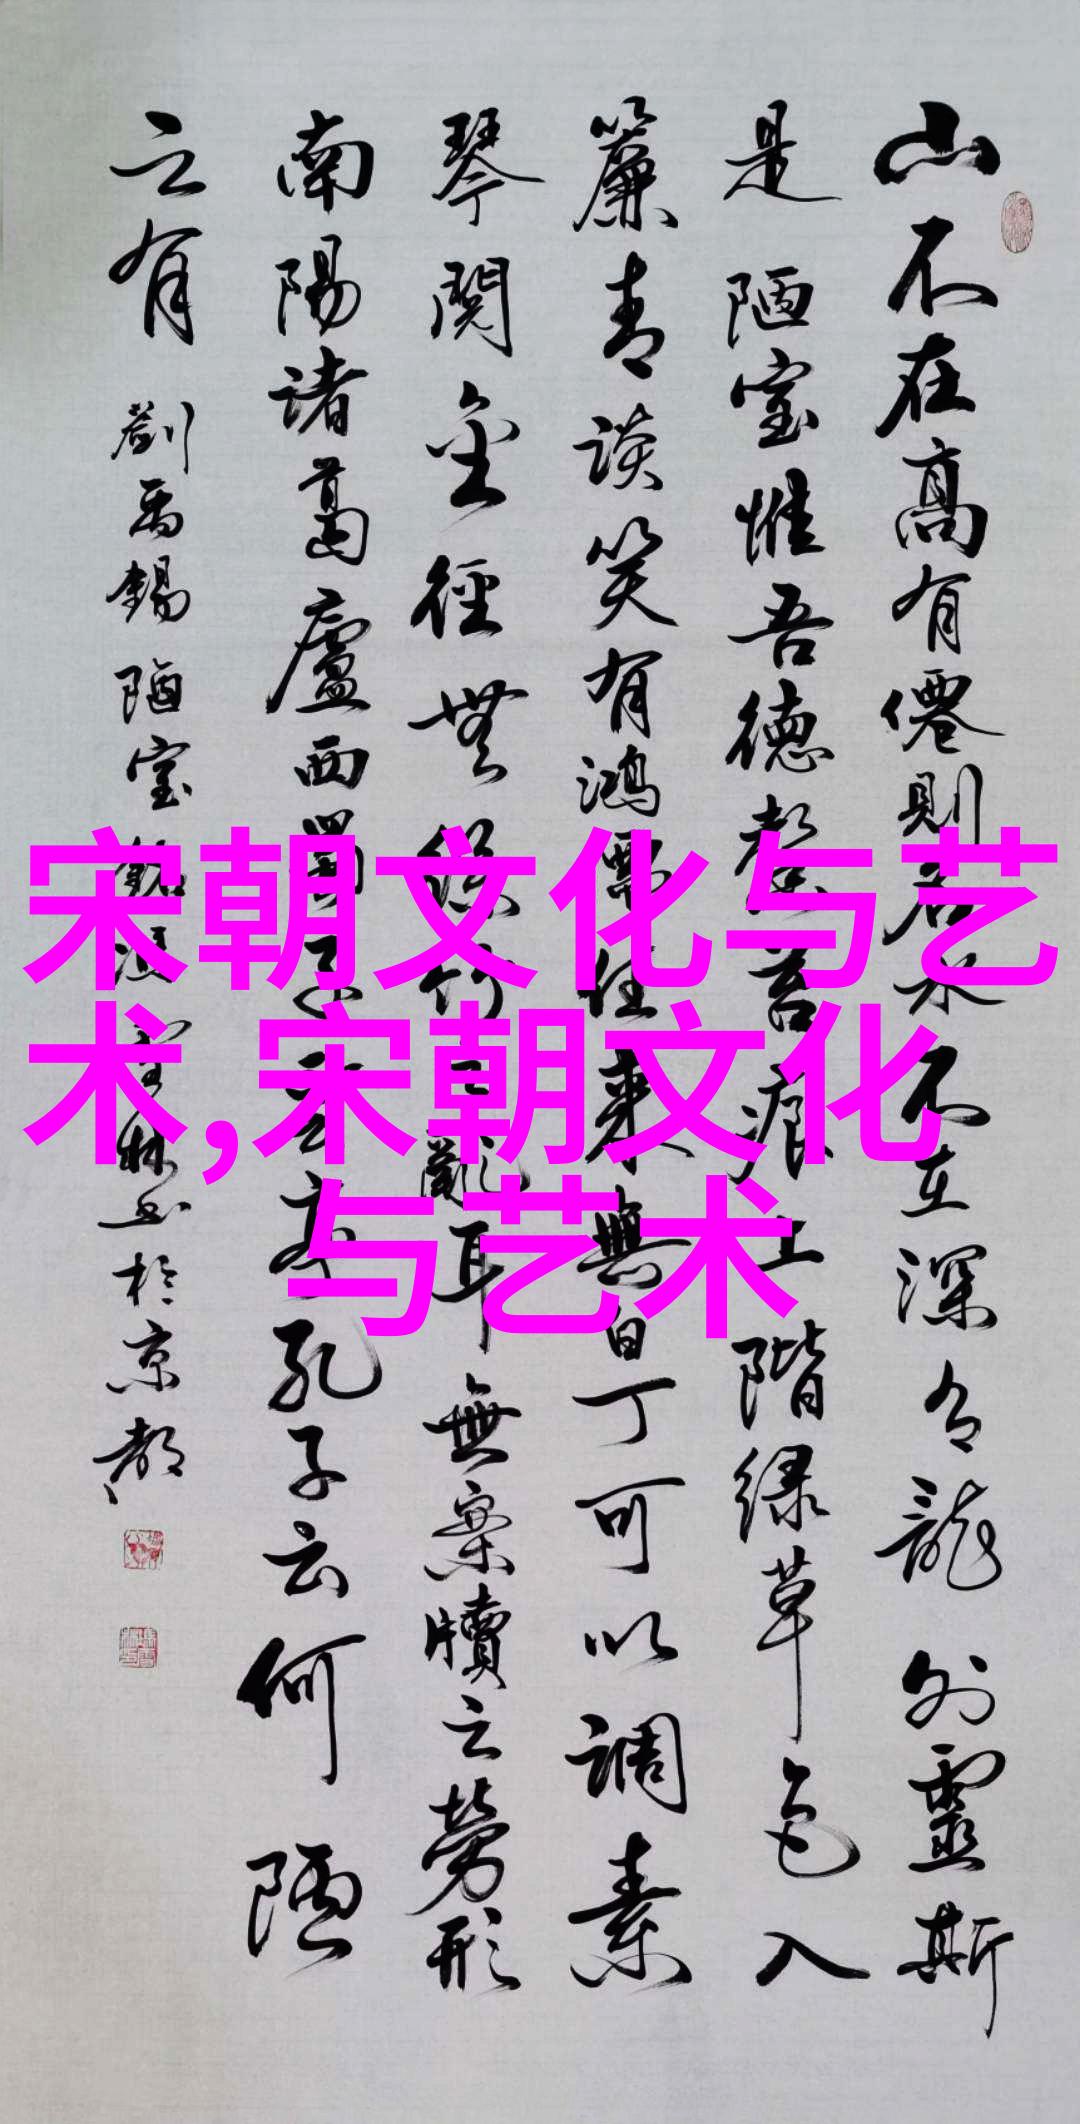 山不在高有僊則名水不在深有龍則靈斯
是陋室惟吾德馨苔痕上階绿草色入
簾青談笑有鴻儒往来無白丁可以調素
琴閱金徑無絲竹之亂耳無案牘之勞形
南陽諸葛廬西蜀子雲亭孔子云何陋
之有
劉禹錫陋室銘 林书於京都
宋朝文化与艺
术,宋朝文化
与艺术